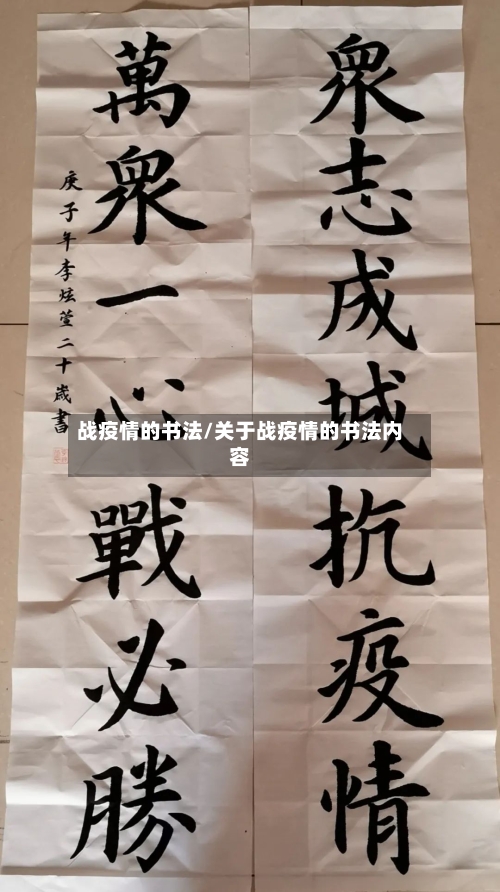 眾志成城抗疫情
萬眾一心戰必勝
庚子年李炫萱二十歲書
战疫情的书法/关于战疫情的书法内
容